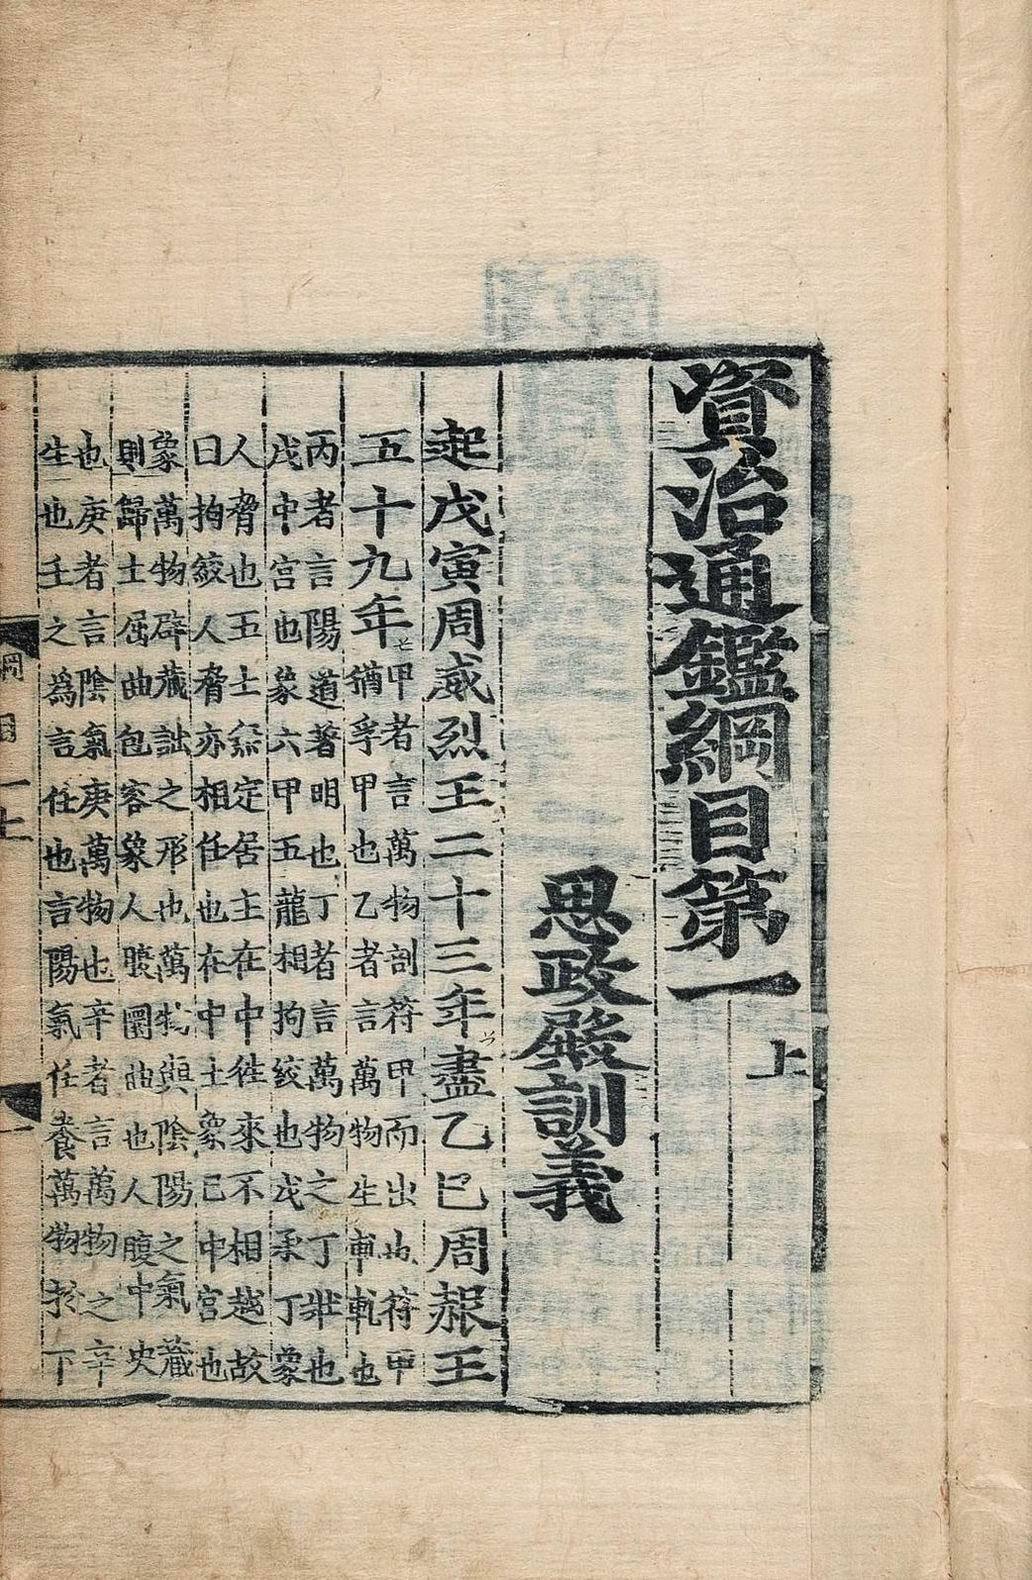 資治通鑑綱目第一
上
思政殿訓義
起戊寅周威烈王二十三年盡乙巳周赧王
五十九年
甲者言萬物剖符甲而出也符甲
猶孚甲也乙者言萬物生軋軋也
丙者言陽道著明也丁者言萬物之丁壯也
戊中宮也象六甲五龍相拘絞也戊承丁象
人脅也五土 定居主在中徃來不相越故
曰拘絞人脅亦相任也在中土象己中宮也
象萬物辟藏詘之形也萬物與陰陽之氣藏
則歸土屈曲包容象人腹圜曲也人腹中央
也庚者言陰氣庚萬物也辛者言萬物之辛
生也壬之爲言任也言陽氣任養萬物於下
綱目一上
一